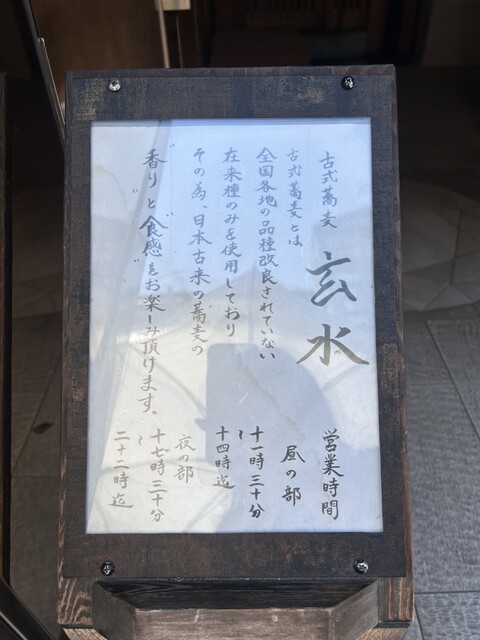 古式蕎麦
玄水
古式蕎麦とは
全国各地の品種改良されていない
在来種のみを使用しており
その為、日本古来の蕎麦の
香りと食感をお楽しみ頂けます。
営業時間
昼の部
十一時三十分
〜
十四時迄
夜の部
十七時三十分
〜
二十二時迄